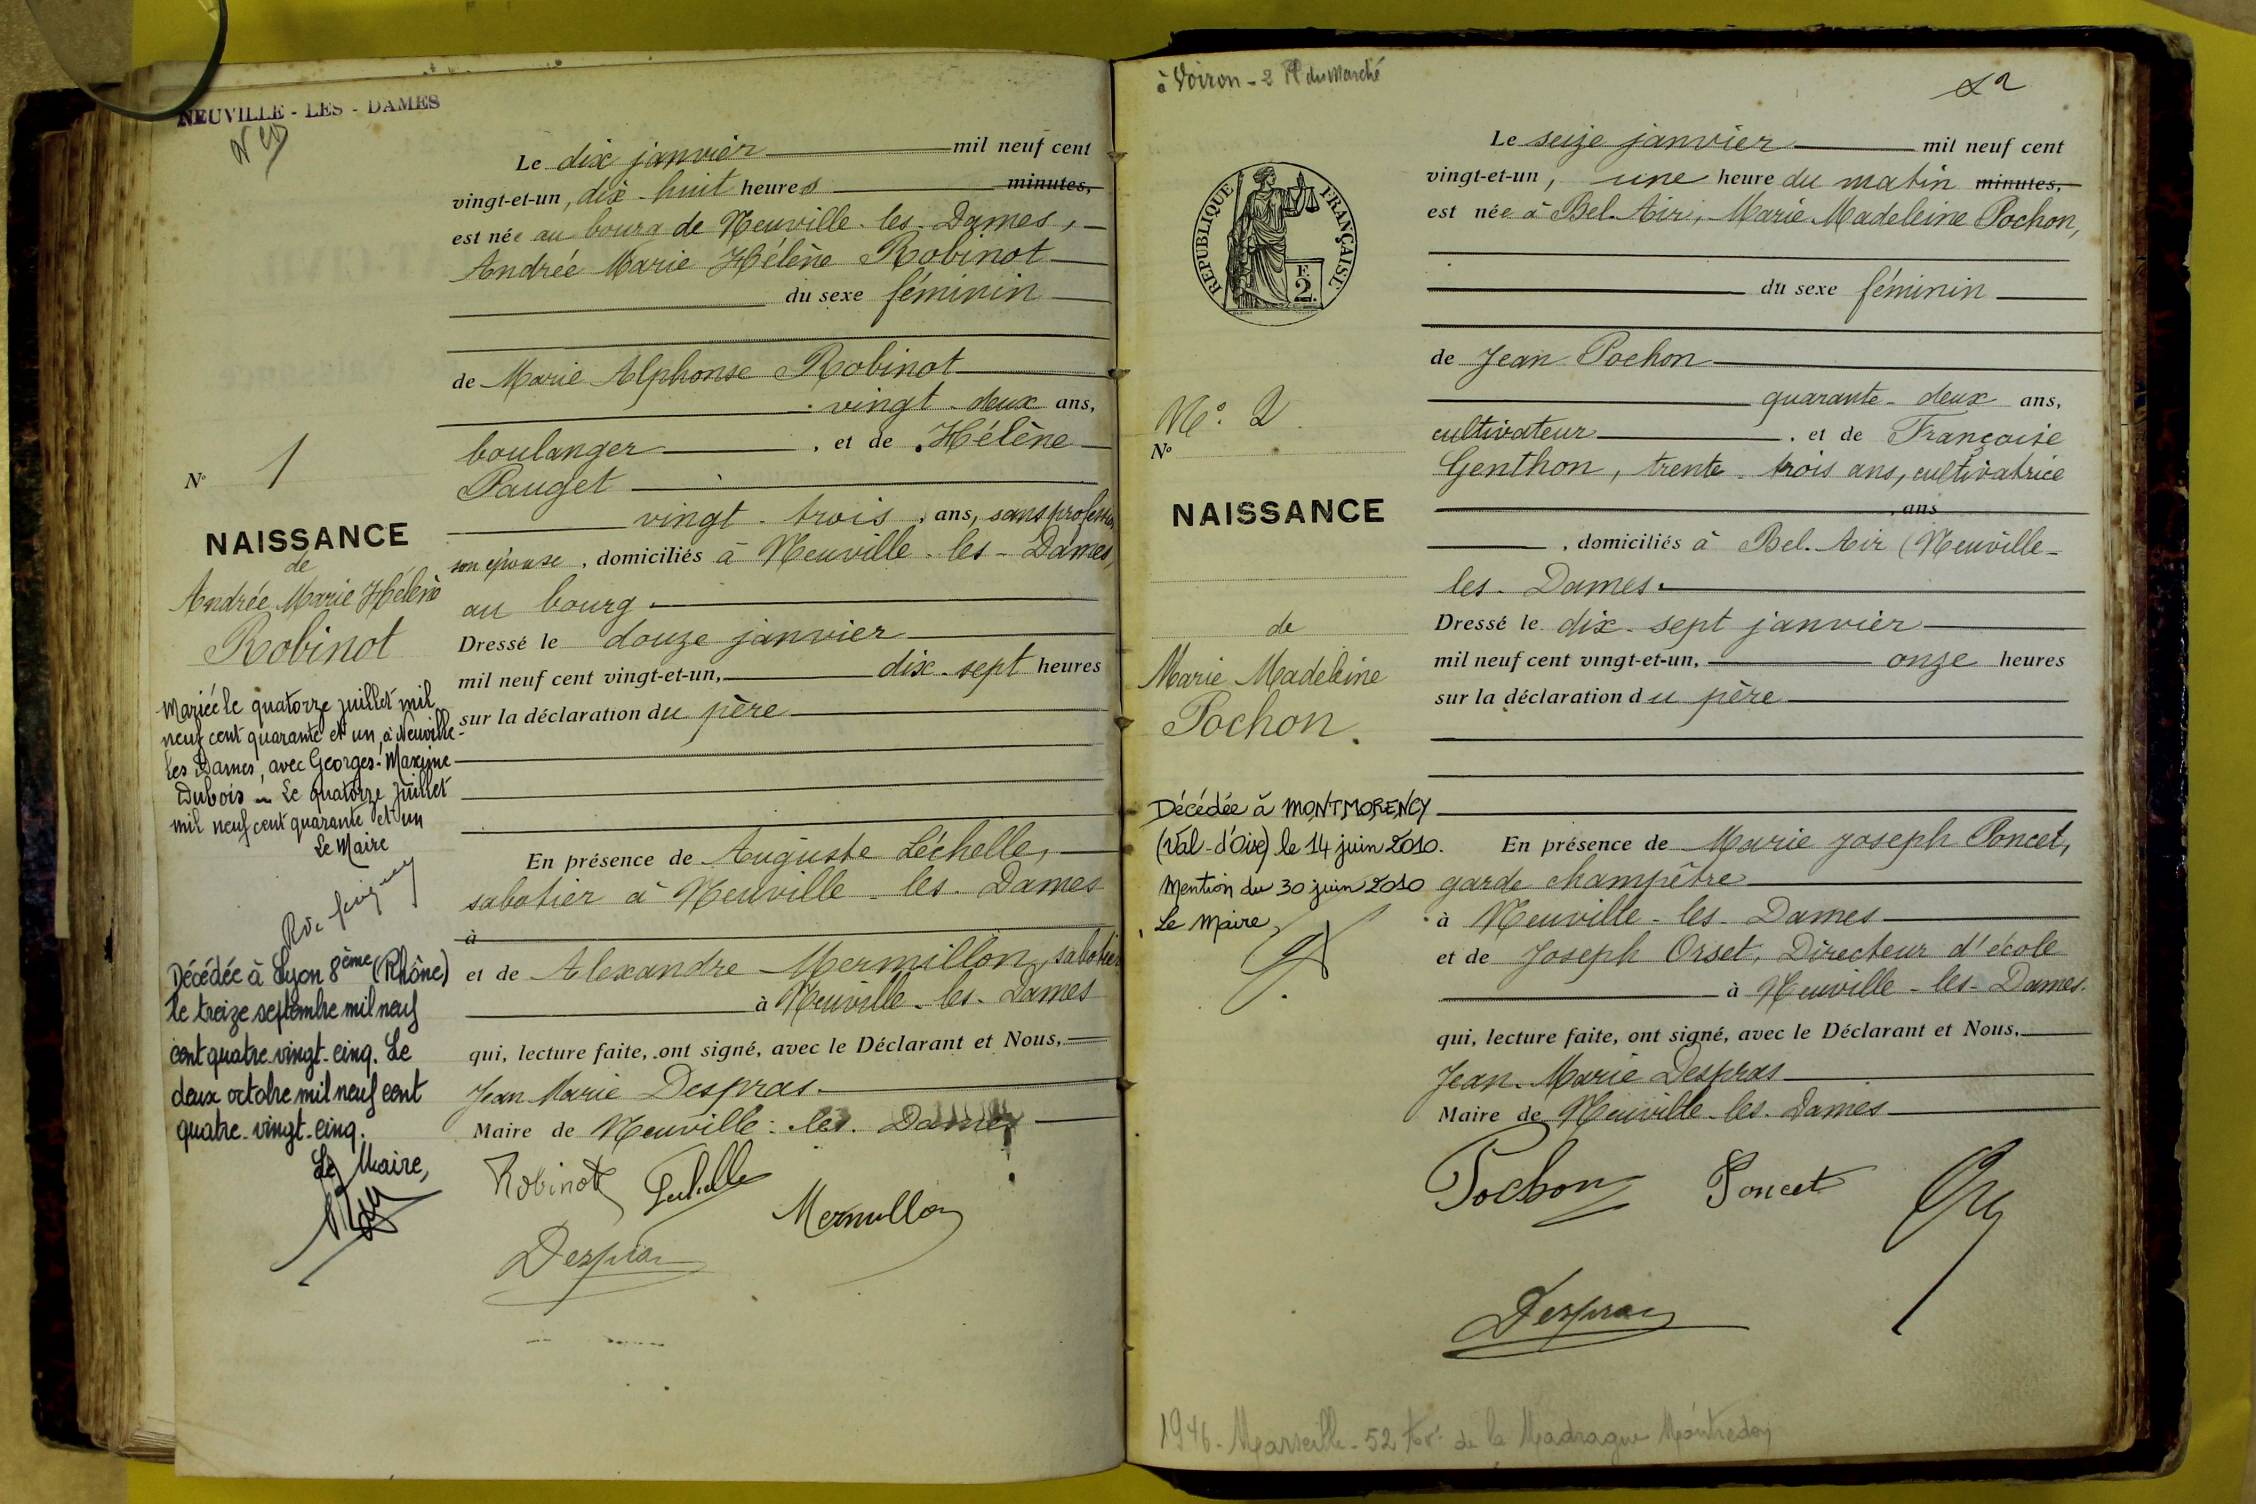 NEUVILLE - LES - DAMES
Le dix janvier mil neuf cent
vingt-et-un, dix-huit heures minutes,
est née au bourg de Neuville-les-Dames,
Andrée Marie Hélène Robinot
du sexe féminin
de Marie Alphonse Robinot
vingt-deux ans,
boulanger, et de Hélène
Pauget
vingt-trois, ans, sans profession
son épouse, domiciliés à Neuville-les-Dames,
au bourg.
Dressé le douze janvier
mil neuf cent vingt-et-un, dix-sept heures
sur la déclaration du père
En présence de Auguste Léchelle,
sabotier à Neuville-les-Dames
à
et de Alexandre Mermillon, sabotier
à Neuville-les-Dames
qui, lecture faite, ont signé, avec le Déclarant et Nous,
Jean Marie Despras
Maire de Neuville-les-Dames
Robinot Léchelle
Mermillon
Despras
N° 1
NAISSANCE
de
Andrée Marie Hélène
Robinot
Mariée le quatorze juillet mil
neuf cent quarante et un, à Neuville-
les Dames, avec Georges-Maxime
Dubois - Le quatorze juillet
mil neuf cent quarante et un
Le Maire
Décédée à Lyon 8ème (Rhône)
le treize septembre mil neuf
cent quatre-vingt-cinq. Le
deux octobre mil neuf cent
quatre-vingt-cinq.
Le Maire,
à Voiron - 2 Pl du Marché
Le seize janvier mil neuf cent
vingt-et-un, une heure du matin minutes,
est née à Bel-Air, Marie Madeleine Pochon,
du sexe féminin
de Jean Pochon
quarante-deux ans,
cultivateur, et de Françoise
Genthon, trente-trois ans, cultivatrice
, ans
, domiciliés à Bel-Air (Neuville-
les-Dames.
Dressé le dix-sept janvier
mil neuf cent vingt-et-un, onze heures
sur la déclaration du père
En présence de Marie Joseph Poncet,
garde champêtre
à Neuville-les-Dames
et de Joseph Orset, Directeur d'école
à Neuville-les-Dames.
qui, lecture faite, ont signé, avec le Déclarant et Nous,
Jean-Marie Despras
Maire de Neuville-les-Dames
Pochon Poncet
Despras
RÉPUBLIQUE FRANÇAISE
F.
2.
N°. 2
N°
NAISSANCE
de
Marie Madeleine
Pochon.
Décédée à MONTMORENCY
(Val-d'Oise) le 14 juin 2010.
Mention du 30 juin 2010
Le Maire,
1946 - Marseille - 52 de la Madrague Montredon